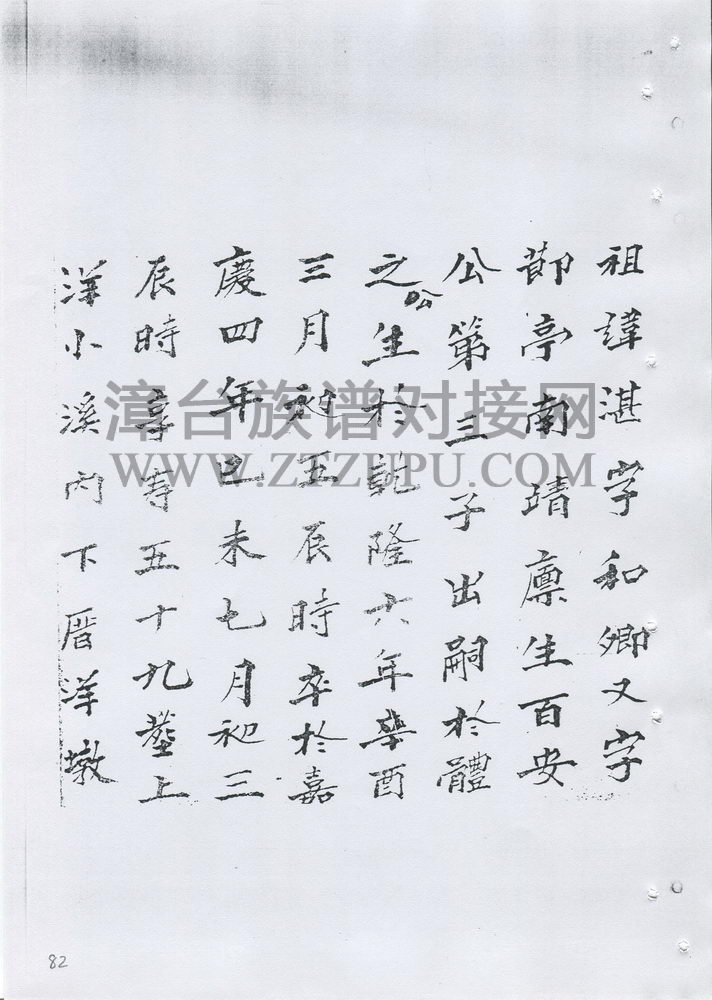 祖諱湛字和卿又字
節亭南靖廪生百安
公第三子出嗣於體
之公生於乾隆六年辛酉
三月初五辰時卒於嘉
慶四年己未七月初三
辰時享壽五十九塟上
洋小溪内下厝洋墩
漳台族谱对接网
WWW.ZTZUPU.COM
82